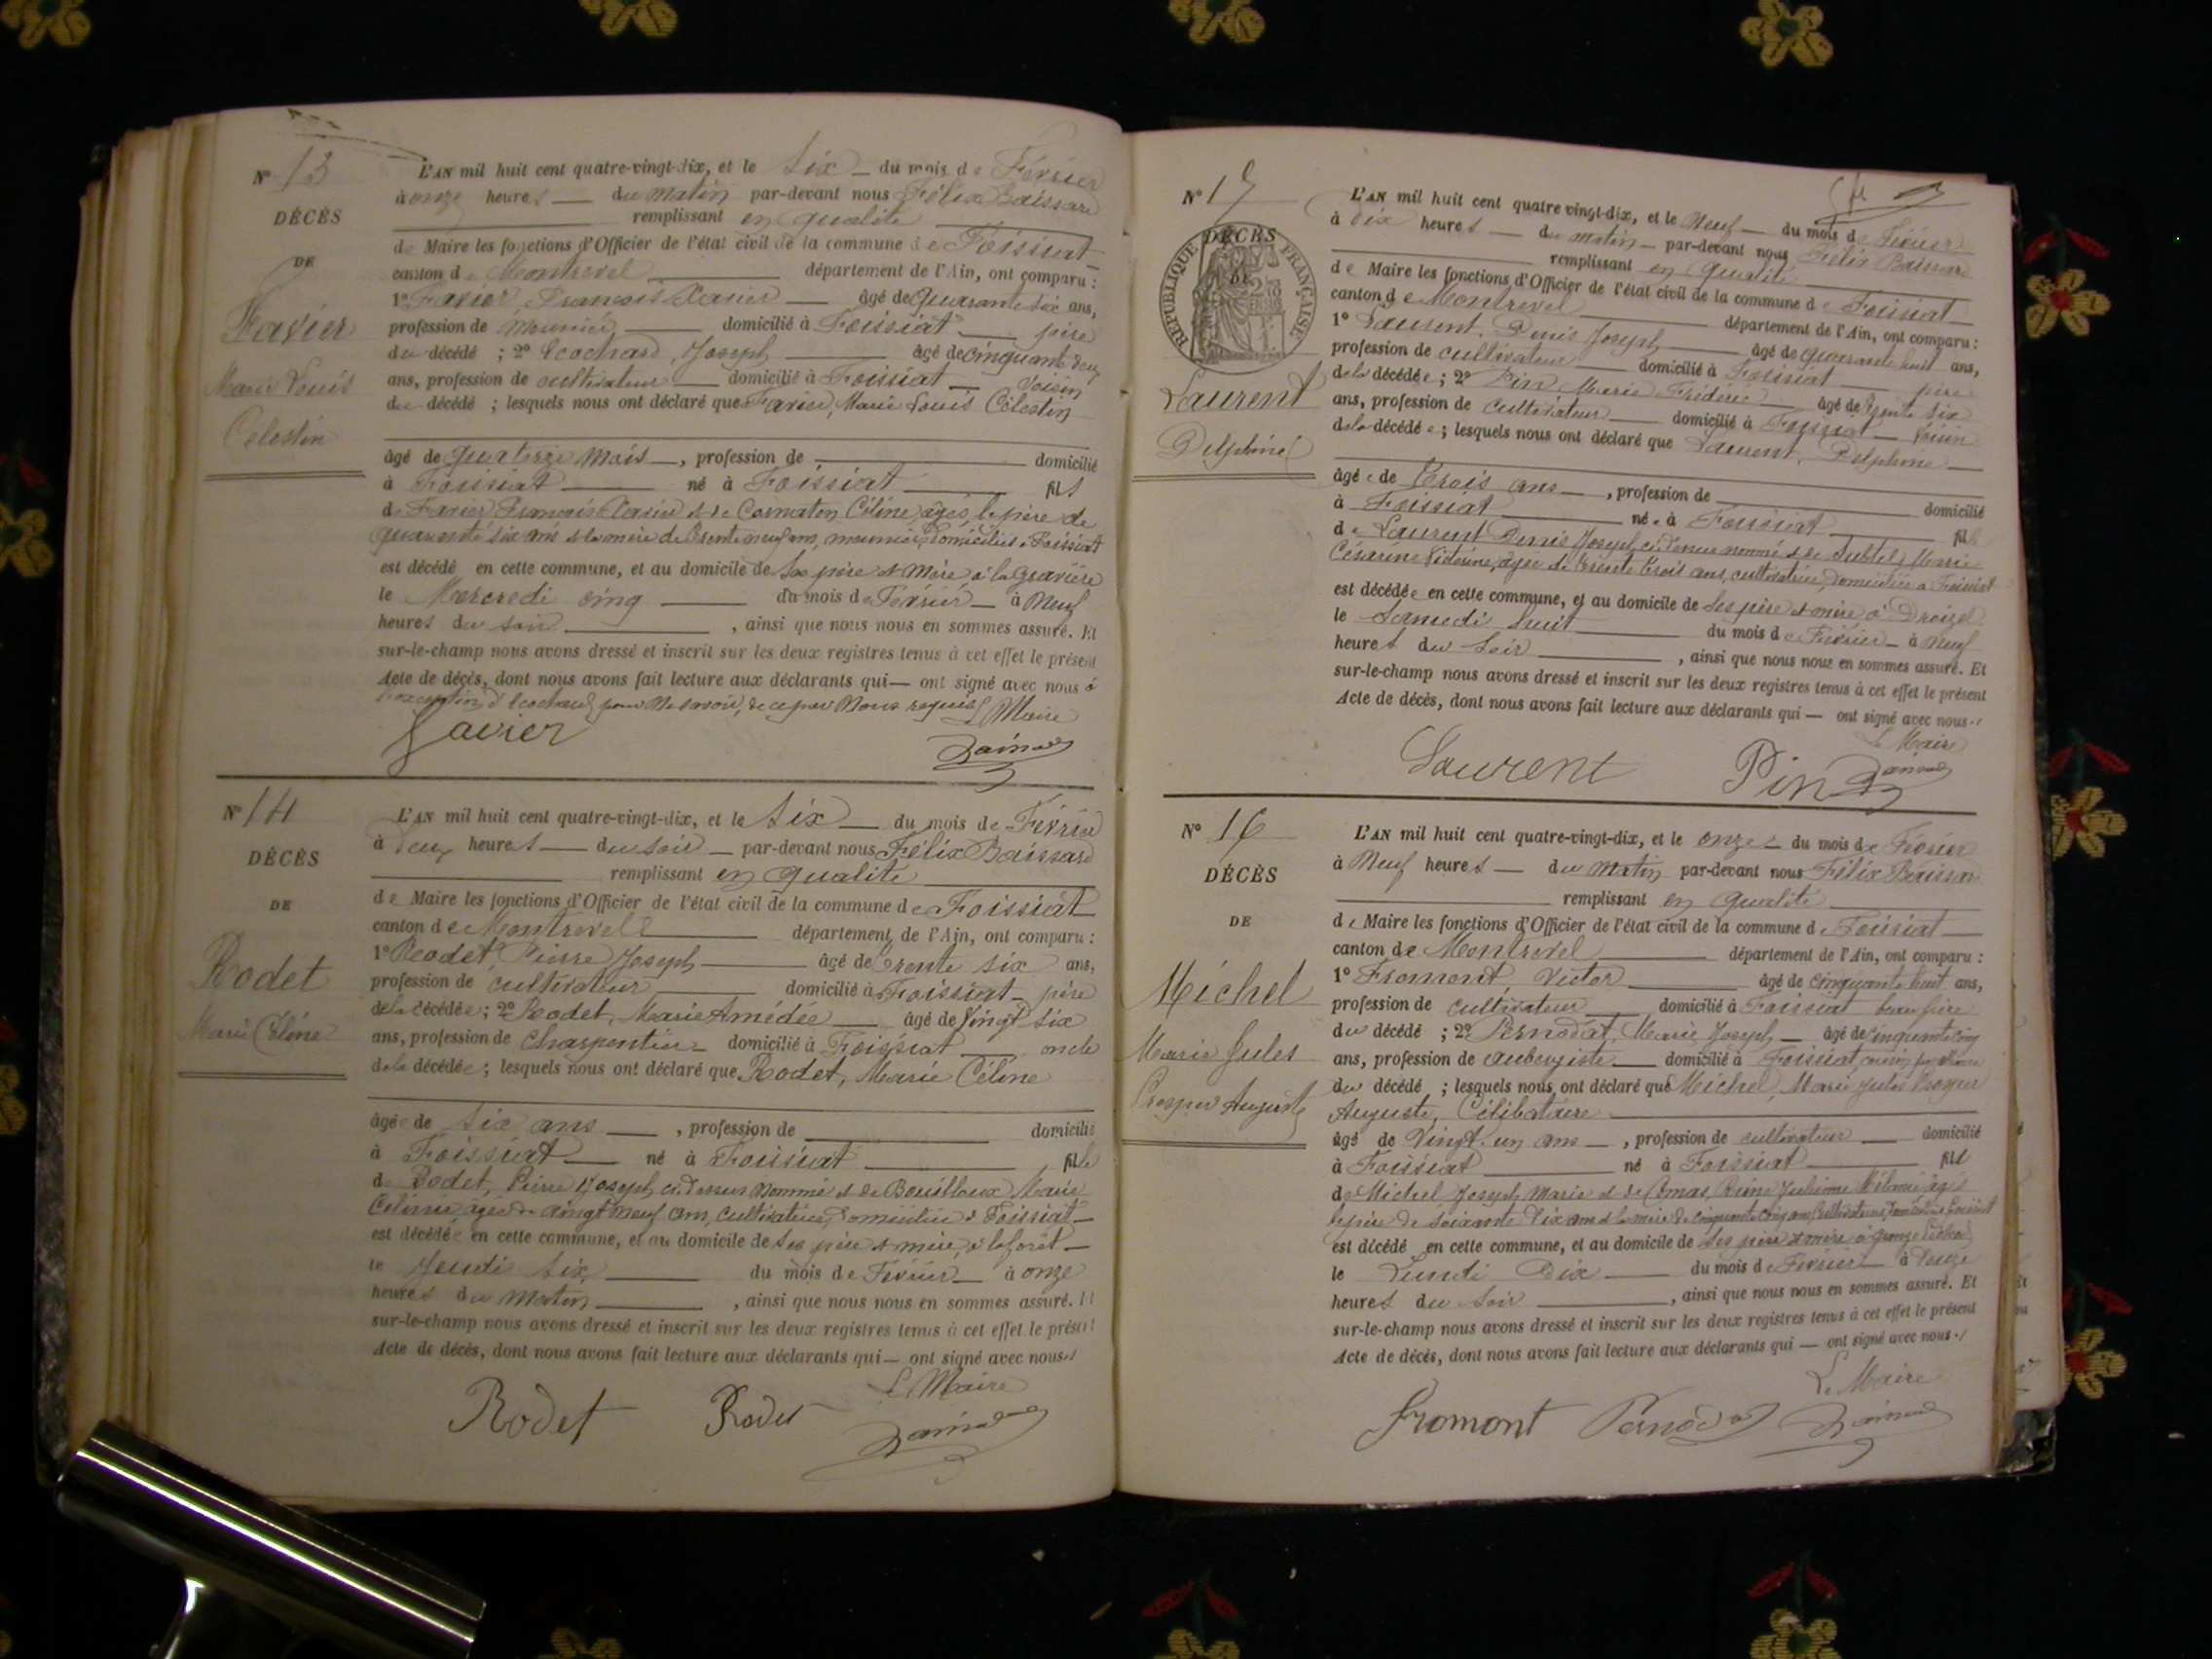 N° 13
DÉCÈS
DE
Favier
Marie Louis
Célestin
L'AN mil huit cent quatre-vingt-dix, et le Six du mois de Février
à onze heures du matin par-devant nous Félix
remplissant en qualité
de Maire les fonctions d'Officier de l'état civil de la commune de Foissiat
canton de Montrevel département de l'Ain, ont comparu :
1° Favier, François Xavier âgé de Quarante six ans,
profession de meunier domicilié à Foissiat père
du décédé ; 2° Ecochard Joseph âgé de cinquante deux
ans, profession de cultivateur domicilié à Foissiat Voisin
du décédé ; lesquels nous ont déclaré que Favier, Marie Louis Célestin
âgé de quatorze mois, profession de domicilié
à Foissiat né à Foissiat fils
de Favier François Xavier et de Céline âgés, le père de
quarante six ans et la mère de trente neuf ans, meuniers, domiciliés à Foissiat
est décédé en cette commune, et au domicile de ses père et mère, à la Gravière
le Mercredi cinq du mois de Février à Neuf
heures du soir, ainsi que nous nous en sommes assuré. Et
sur-le-champ nous avons dressé et inscrit sur les deux registres tenus à cet effet le présent
Acte de décès, dont nous avons fait lecture aux déclarants qui — ont signé avec nous à
l'exception d'Ecochard pour ne savoir, de ce par Nous requis. Le Maire
Favier
N° 14
DÉCÈS
DE
Rodet
Marie Céline
L'AN mil huit cent quatre-vingt-dix, et le Six du mois de Février
à deux heures du soir par-devant nous Félix
remplissant en qualité
de Maire les fonctions d'Officier de l'état civil de la commune de Foissiat
canton de Montrevel département de l'Ain, ont comparu :
1° Rodet Pierre Joseph âgé de trente six ans,
profession de cultivateur domicilié à Foissiat père
de la décédée ; 2° Rodet, Marie Amédée âgé de Vingt six
ans, profession de Charpentier domicilié à Foissiat oncle
de la décédée ; lesquels nous ont déclaré que Rodet, Marie Céline
âgée de Six ans, profession de domicilié
à Foissiat né à Foissiat fille
de Rodet, Pierre Joseph, ci-dessus nommé et de Bouilloux Marie
âgée de vingt neuf ans, cultivatrice, domiciliée à Foissiat
est décédée en cette commune, et au domicile de ses père et mère, à la forêt
le Jeudi six du mois de Février à onze
heures du matin, ainsi que nous nous en sommes assuré. Et
sur-le-champ nous avons dressé et inscrit sur les deux registres tenus à cet effet le présent
Acte de décès, dont nous avons fait lecture aux déclarants qui — ont signé avec nous
Le Maire
Rodet Rodet
N° 15
DÉCÈS
DE
RÉPUBLIQUE FRANÇAISE
Laurent
Delphine
L'AN mil huit cent quatre vingt-dix, et le Neuf du mois de Février
à dix heures du matin par-devant nous Félix
remplissant en qualité
de Maire les fonctions d'Officier de l'état civil de la commune de Foissiat
canton de Montrevel département de l'Ain, ont comparu :
1° Laurent, Denis Joseph âgé de quarante huit ans,
profession de cultivateur domicilié à Foissiat père
de la décédée ; 2° Pin Marie Frédéric âgé de trente six
ans, profession de cultivateur domicilié à Foissiat Voisin
de la décédée ; lesquels nous ont déclaré que Laurent, Delphine
âgée de trois ans, profession de domicilié
à Foissiat née à Foissiat fille
de Laurent Denis Joseph, ci-dessus nommé et de Marie
Césarine âgée de trente trois ans, cultivatrice, domiciliée à Foissiat
est décédée en cette commune, et au domicile de ses père et mère à
le Samedi huit du mois de Février à neuf
heures du soir, ainsi que nous nous en sommes assuré. Et
sur-le-champ nous avons dressé et inscrit sur les deux registres tenus à cet effet le présent
Acte de décès, dont nous avons fait lecture aux déclarants qui — ont signé avec nous
Le Maire
Laurent Pin
N° 16
DÉCÈS
DE
Michel
Marie Jules
Prosper Auguste
L'AN mil huit cent quatre-vingt-dix, et le onze du mois de Février
à Neuf heures du matin par-devant nous Félix
remplissant en qualité
de Maire les fonctions d'Officier de l'état civil de la commune de Foissiat
canton de Montrevel département de l'Ain, ont comparu :
1° Fromont, Victor âgé de cinquante huit ans,
profession de cultivateur domicilié à Foissiat beau frère
du décédé ; 2° Pernodat, Marie Joseph âgé de cinquante cinq
ans, profession de aubergiste domicilié à Foissiat, cousin par alliance
du décédé ; lesquels nous ont déclaré que Michel, Marie Jules Prosper
Auguste, Célibataire
âgé de Vingt un ans, profession de cultivateur domicilié
à Foissiat né à Foissiat fils
de Michel Joseph Marie et de Julienne Mélanie âgés
le père de soixante dix ans et la mère de cinquante cinq ans, cultivateurs, domiciliés à Foissiat
est décédé en cette commune, et au domicile de ses père et mère à
le Lundi Dix du mois de Février à Douze
heures du soir, ainsi que nous nous en sommes assuré. Et
sur-le-champ nous avons dressé et inscrit sur les deux registres tenus à cet effet le présent
Acte de décès, dont nous avons fait lecture aux déclarants qui — ont signé avec nous
Le Maire
Fromont Pernodat